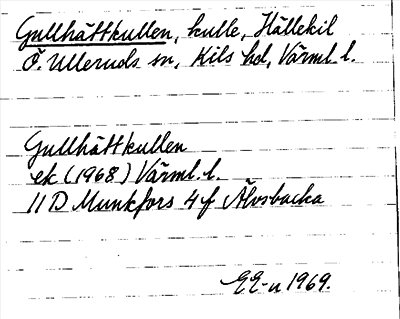 Gullhättkullen, kulle, Hällekil
Ö. Ulleruds sn, Kils hd, Värml. l.
Gullhättkullen
ek (1968) Värml. l.
11 D Munkfors 4f Älvsbacka
EE-n 1969.